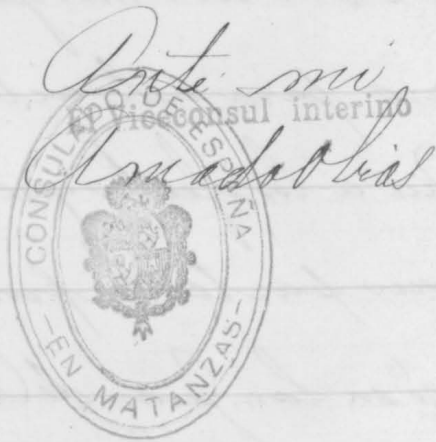 Ante mi
El Viceconsul interino
Amado Obias
CONSULADO DE ESPAÑA
-EN MATANZAS-